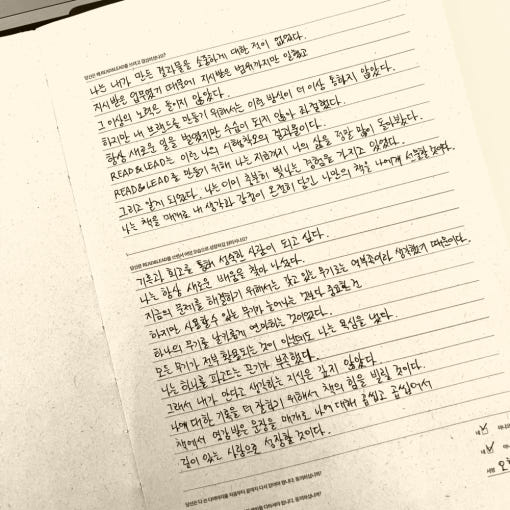 당신은 왜 READ&LEAD를 쓰려고 결심하셨나요?
나는 내가 만든 결과물을 소중하게 대한 적이 없었다.
지시받은 업무였기 때문에 지시받은 범위까지만 일했고
그 이상의 노력은 들이지 않았다.
하지만 내 브랜드를 만들기 위해서는 이런 방식이 더 이상 통하지 않았다.
항상 새로운 일을 벌였지만 수습이 되지 않아 좌절했다.
READ&LEAD는 이런 나의 시행착오의 결과물이다.
READ&LEAD를 만들기 위해 나는 지금까지 나의 삶을 정말 많이 돌아봤다.
그리고 알게 되었다. 나는 이미 충분히 빛나는 경험을 가지고 있었다.
나는 책을 매개로 내 생각과 감정이 온전히 담긴 나만의 책을 나에게 선물할 것이다.
당신은 READ&LEAD를 쓰면서 어떤 모습으로 성장하길 원하시나요?
기록과 회고를 통해 성숙한 사람이 되고 싶다.
나는 항상 새로운 배움을 찾아 나섰다.
지금의 문제를 해결하기 위해서는 갖고 있는 무기로는 역부족이라 생각했기 때문이다.
하지만 사용할 수 있는 무기가 늘어나는 것보다 중요한 건
하나의 무기를 날카롭게 연마하는 것이었다.
모든 무기가 전부 활용되는 것이 아닌데도 나는 욕심을 냈다.
나는 하나를 파고드는 끈기가 부족했다.
그래서 내가 안다고 생각하는 지식은 깊지 않았다.
나에 대한 기록을 더 잘하기 위해서 책의 힘을 빌릴 것이다.
책에서 영감받은 문장을 매개로 나에 대해 곱씹고 곱씹어서
깊이 있는 사람으로 성장할 것이다.
네
네
서명